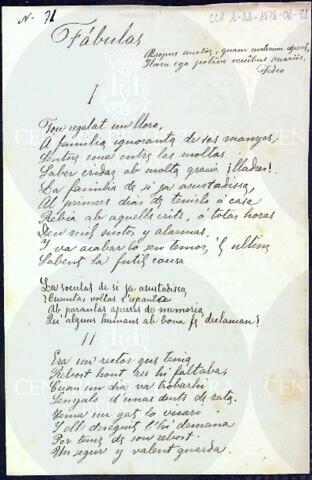 N. 71
Fábulas
Æsopus auctor, quam materiam reperit,
Hanc ego polivi versibus senariis.
Fedro
I
Fou regalat un lloro,
A familia ignoranta de ses manyes;
Sentne una entre las moltas
Saber cridar ab molta gracia ¡lladres!
La familia de si ja asustadissa,
Al primers dias de tenirlo á casa
Rebia ab aquells crits, á totas horas
Deu mil sustos y alarmas,
Y va acabar lo seu temor, al ultim
Sabent la futil causa
La societat de si ja asustadissa
¿Cuantas voltas s'espanta
Ab paraulas apresas de memoria
Qui alguns humans ab bona fe declaman?
II
Era un rector que tenia
Rebost hont res hi faltaba;
Cuan un dia va trobarhi
Senyals d'unas dents de rata.
Tenia un gat lo vicari
Y ell desseguit l'hi demana
Per tenir de son rebost
Un segur y valent guarda.